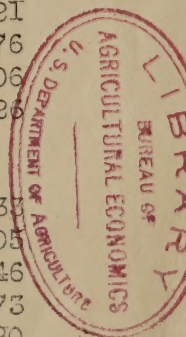 21
76
06
26
05
46
73
LIBRARY
BUREAU OF
AGRICULTURAL ECONOMICS
U. S. DEPARTMENT OF AGRICULTURE